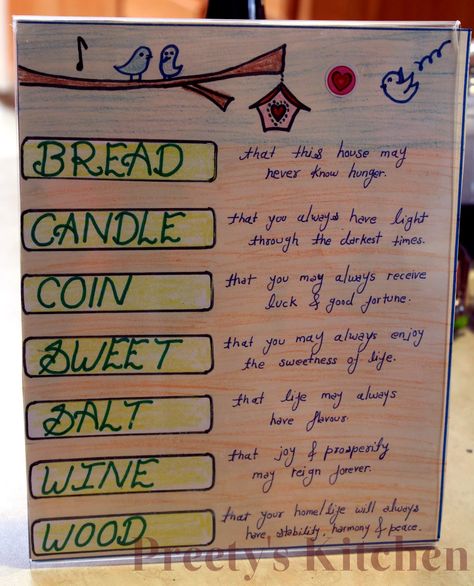 BREAD
that this house may
never know hunger.
CANDLE
that you always have light
through the darkest times.
COIN
that you may always receive
luck & good fortune.
SWEET
that you may always enjoy
the sweetness of life.
SALT
that life may always
have flavour.
WINE
that joy & prosperity
may reign forever.
WOOD
that your home/life will always
have stability, harmony & peace.
Preety's Kitchen